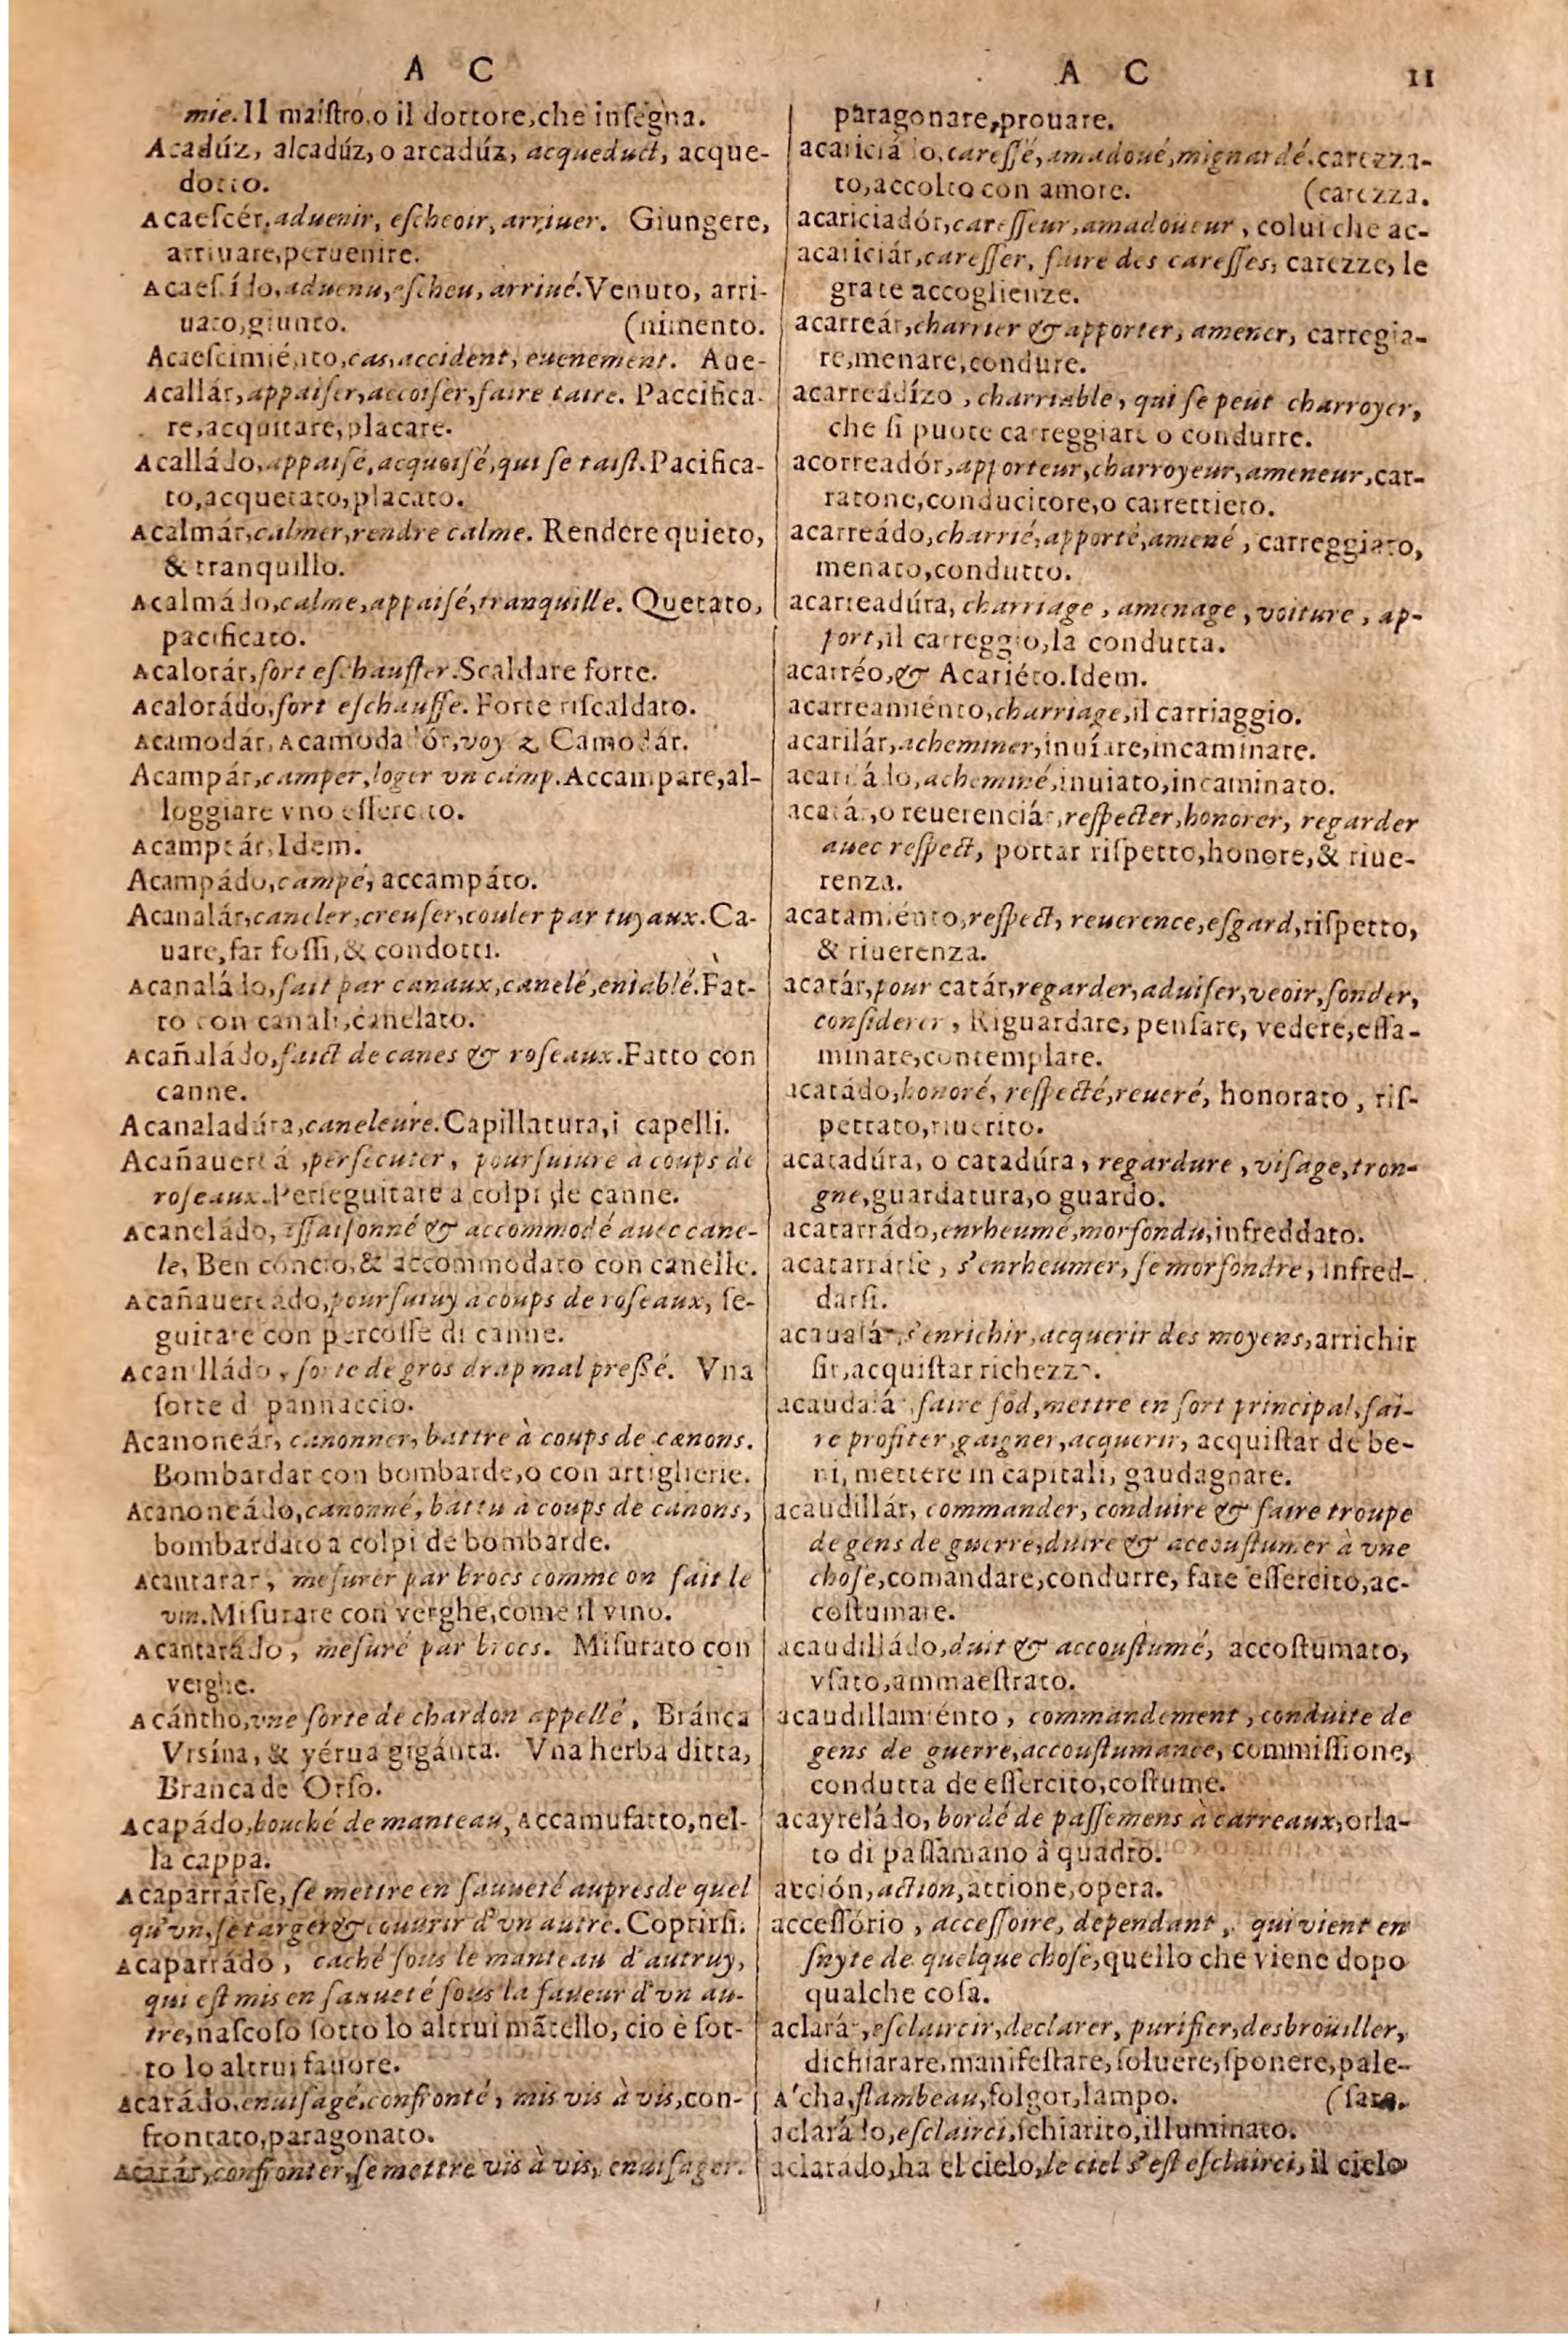 A C
mie. Il maiſtro, o il dottore, che inſegna.
Acadúz, alcadúz, o arcadúz, acqueduct, acque-
dotto.
Acaeſcér, aduenir, eſcheoir, arriuer. Giungere,
arriuare, peruenire.
Acaeſcído, aduenu, eſcheu, arriué. Venuto, arri-
uato, giunto. (nimento.
Acaeſcimiénto, cas, accident, euenement. Aue-
Acallár, appaiſer, accoiſer, faire taire. Paccifica-
re, acquitare, placare.
Acalládo, appaiſé, acquoiſé, qui se taiſt. Pacifica-
to, acquetato, placato.
Acalmár, calmer, rendre calme. Rendere quieto,
& tranquillo.
Acalmádo, calme, appaiſé, tranquille. Quetato,
pacificato.
Acalorár, fort eſchauffer. Scaldare forte.
Acalorádo, fort eſchauffe. Forte riſcaldato.
Acamodár, Acamodadór, voyez Camodár.
Acampár, camper, loger vn camp. Accampare, al-
loggiare vno eſſercito.
Acampeár, Idem.
Acampádo, campé, accampáto.
Acanalár, caneler, creuſer, couler par tuyaux. Ca-
uare, far foſſi, & condotti.
Acanaládo, fait par canaux, canelé, entablé. Fàt-
to con canali, canelato.
Acañaládo, faict de canes & roſeaux. Fatto con
canne.
Acanaladúra, caneleure. Capillatura, i capelli.
Acañauereár, perſecuter, pourſuiure à coups de
roſeaux. Perſeguitare a colpi de canne.
Acaneládo, aſſaiſonné & accommodé auec cane-
le, Ben concio, & accommodato con canelle.
Acañauereado, pourſuiuy à coups de roſeaux, ſe-
guitare con percoſſe di canne.
Acanilládo, ſorte de gros drap mal preſſé. Vna
ſorte di pannaccio.
Acanoneár, canonner, battre à coups de canons.
Bombardar con bombarde, o con artiglierie.
Acanoneádo, canonné, battu à coups de canons,
bombardato a colpi de bombarde.
Acantarar, meſurer par brocs comme on fait le
vin. Miſurare con verghe, come il vino.
Acantarádo, meſuré par brocs. Miſurato con
verghe.
Acántho, vne ſorte de chardon appellé, Bránca
Vrsína, & yérua gigánta. Vna herba ditta,
Branca de Orſo.
Acapádo, bouché de manteau, Accamufatto, nel-
la cappa.
Acaparrárſe, ſe mettre en ſauueté aupres de quel
qu'vn, ſe targer & couurir d'vn autre. Coprirſi.
Acaparrádo, caché ſous le manteau d'autruy,
qui eſt mis en ſauueté ſous la faueur d'vn au-
tre, naſcoſo ſotto lo altrui mãtello, cio è ſot-
to lo altrui fauore.
Acarádo, enuiſagé, confronté, mis vis à vis, con-
frontato, paragonato.
Acarár, confronter, ſe mettre vis à vis, enuiſager.
A C 11
paragonare, prouare.
acariciádo, careſſé, amadoué, mignardé. carezza-
to, accolto con amore. (carezza.
acariciadór, careſſeur, amadoueur, colui che ac-
acariciár, careſſer, faire des careſſes, carezze, le
grate accoglienze.
acarreár, charrier & apporter, amener, carregia-
re, menare, condure.
acarreadízo, charriable, qui ſe peut charroyer,
che ſi puote carreggiare o condurre.
acorreadór, apporteur, charroyeur, ameneur, car-
ratone, conducitore, o carrettiero.
acarreádo, charrié, apporté, amené, carreggiato,
menato, condutto.
acarreadúra, charriage, amenage, voiture, ap-
port, il carreggio, la condutta.
acarréo, & Acariéto. Idem.
acarreamiénto, charriage, il carriaggio.
acarilár, acheminer, inuíare, incaminare.
acariládo, acheminé, inuiato, incaminato.
acatár, o reuerenciár, reſpecter, honorer, regarder
auec reſpect, portar riſpetto, honore, & riue-
renza.
acatamiénto, reſpect, reuerence, eſgard, riſpetto,
& riuerenza.
acatár, pour catár, regarder, aduiſer, veoir, ſonder,
conſiderer, Riguardare, penſare, vedere, eſſa-
minare, contemplare.
acatádo, honoré, reſpecté, reueré, honorato, riſ-
pettato, riuerito.
acatadúra, o catadúra, regardure, viſage, tron-
gne, guardatura, o guardo.
acatarrádo, enrheumé, morfondu, infreddato.
acatarrarſe, s'enrheumer, ſe morfondre, infred-
darſi.
acaualár, s'enrichir, acquerir des moyens, arrichir
ſir, acquiſtar richezze.
acaudalár, faire fõd, mettre en ſort principal, fai-
re profiter, gaigner, acquerir, acquiſtar de be-
ni, mettere in capitali, gaudagnare.
acaudillár, commander, conduire & faire troupe
de gens de guerre, duire & accouſtumer à vne
choſe, comandare, condurre, fare eſſercito, ac-
coſtumare.
acaudilládo, duit & accouſtumé, accoſtumato,
vſato, ammaeſtrato.
acaudillamiénto, commandement, conduite de
gens de guerre, accouſtumance, commiſſione,
condutta de eſſercito, coſtume.
acayreládo, bordé de paſſemens à carreaux, orla-
to di paſſamano à quadro.
acción, action, attione, opera.
acceſſório, acceſſoire, dependant, qui vient en
ſuyte de quelque choſe, quello che viene dopo
qualche coſa.
aclarár, eſclaircir, declarer, purifier, desbroüiller,
dichiarare, manifeſtare, ſoluere, ſponere, pale-
A'cha, flambeau, folgor, lampo. (ſare.
aclarádo, eſclairci, ſchiarito, illuminato.
aclarado, ha el cielo, le ciel s'eſt eſclairci, il cielo